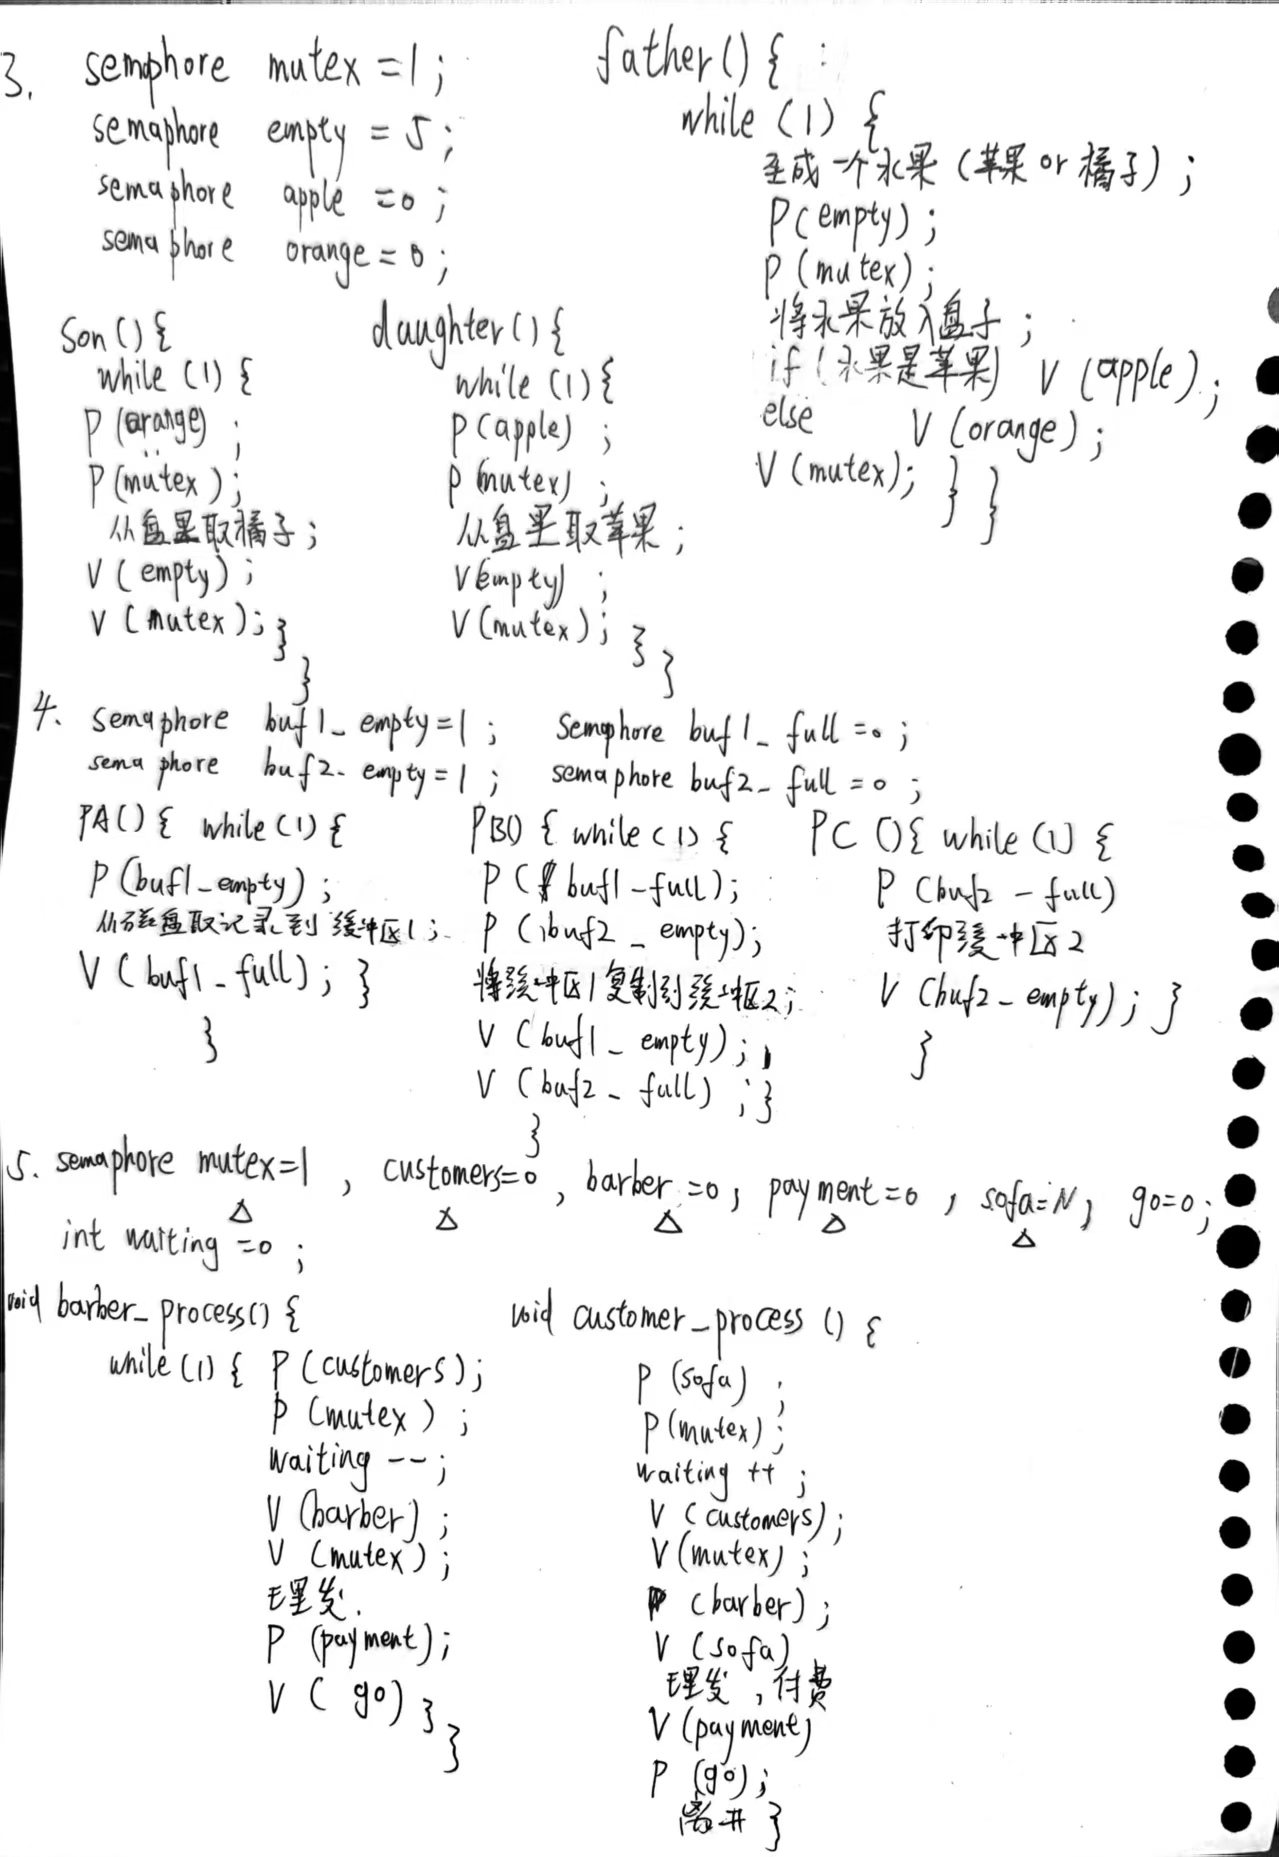 3. semaphore mutex = 1 ;
semaphore empty = 5 ;
semaphore apple = 0 ;
semaphore orange = 0 ;
father () {
while (1) {
生成一个水果 (苹果 or 橘子) ;
P (empty) ;
P (mutex) ;
将水果放入盘子 ;
if (水果是苹果) V (apple) ;
else V (orange) ;
V (mutex) ; } }
Son () {
while (1) {
P (orange) ;
P (mutex) ;
从盘里取橘子 ;
V (empty) ;
V (mutex) ; }
}
daughter () {
while (1) {
P (apple) ;
P (mutex) ;
从盘里取苹果 ;
V (empty) ;
V (mutex) ; } }
4. semaphore buf1_empty = 1 ; semaphore buf1_full = 0 ;
semaphore buf2_empty = 1 ; semaphore buf2_full = 0 ;
PA () { while (1) {
P (buf1_empty) ;
从磁盘取记录到缓冲区1 ;
V (buf1_full) ; }
}
PB () { while (1) {
P (buf1_full) ;
P (buf2_empty) ;
将缓冲区1复制到缓冲区2 ;
V (buf1_empty) ;
V (buf2_full) ; }
}
PC () { while (1) {
P (buf2_full)
打印缓冲区2
V (buf2_empty) ; }
}
5. semaphore mutex=1 , customers=0 , barber=0 ; payment=0 , sofa=N ; go=0 ;
int waiting = 0 ;
void barber_process() {
while (1) { P (customers) ;
P (mutex) ;
waiting -- ;
V (barber) ;
V (mutex) ;
理发.
P (payment) ;
V (go) }
}
void customer_process () {
P (sofa) ;
P (mutex) ;
waiting ++ ;
V (customers) ;
V (mutex) ;
P (barber) ;
V (sofa)
理发 , 付费
V (payment)
P (go) ;
离开 }